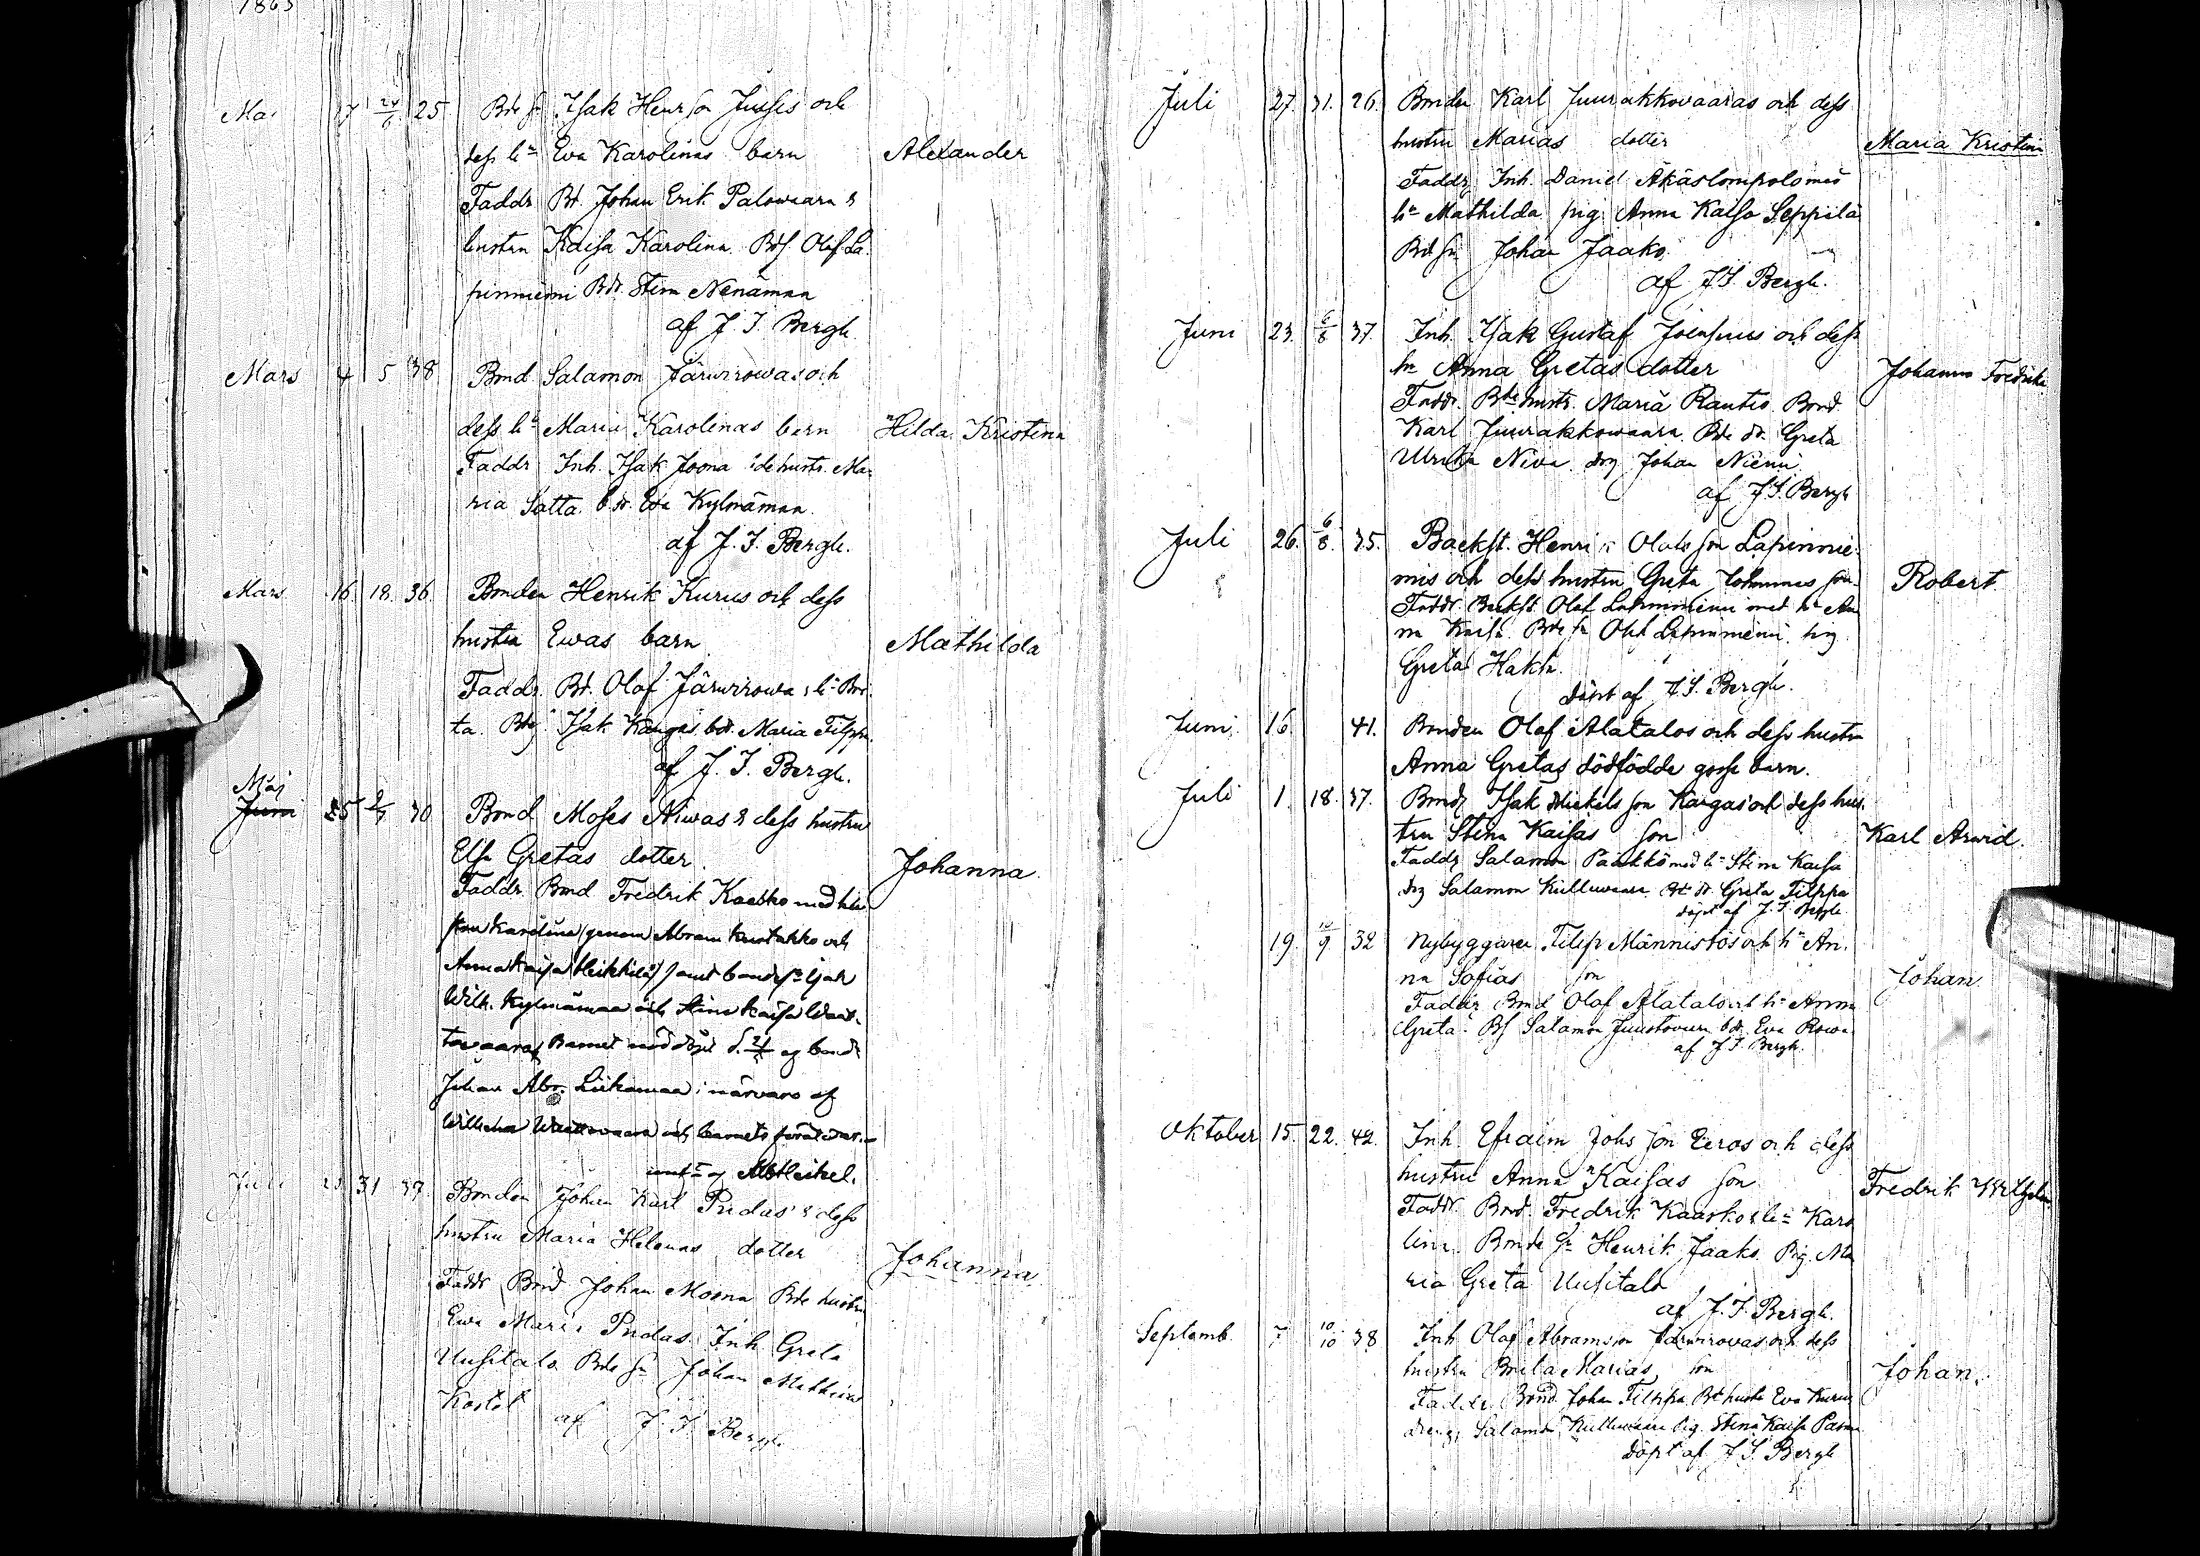 1863
Maj 17 24/6 25. Bde sn Isak Henr son Jussis och
dess hu Eva Karolinas barn Alexander
Faddr Bd. Johan Erik Palowaara &
hustru Kaisa Karolina. Bds. Olof La-
pinniemi Bdr. Stina Nenämaa
af J. I. Bergh.
Mars 4 5 38 Bond Salamon Järwirowas och
dess hu Maria Karolinas barn Hilda Kristina
Faddr Inh. Isak Joona bde hustr. Ma-
ria Satta b.dr. Eva Kylmämaa.
af J. I. Bergh.
Mars 16. 18. 36 Bonden Henrik Kurus och dess
hustru Ewas barn Mathilda
Faddr. Bd. Olof Järwirowa & hu Bri-
ta. Isak Kangas. bdr. Maria Filppa
af J. I. Bergh.
Maj
Juni 25 30 Bond Moses Niwas & dess hustru
Elsa Gretas dotter. Johanna.
Faddr. Bond Fredrik Kaarko med hu-
stru Karolina (genom Abram
Anna Kaisa Heikkilä) samt bondesn Isak
Wilh. Kylmämaa och Stina Kaisa Waat-
towaara. Barnet nöddöpt d. af bond
Johan Abr. Liikamaa i närvaro af
Wilhelm Waattowaara och barnets föräldrar
Juli 23 31 37. Bonden Johan Karl Pudas & dess
hustru Maria Helenas dotter Johanna.
Faddr Bond Johan Moona Bde hustru
Ewa Maria Pudas. Inh Greta
Uusitalo Bde sn Johan Matthias
af J. I. Bergh.
Juli 27. 31. 26. Bonden Karl Juurakkovaaras och dess
hustru Marias dotter Maria Kristina
Faddr Inh. Daniel Äkäslompolo med
hu Mathilda pig. Anna Kaisa Seppilä
Bd sn Johan Jaako.
af J I. Bergh.
Juni 23. 6/8 37. Inh. Isak Gustaf Joensuus och dess
hu Anna Gretas dotter Johanna Fredrika
Faddr. Bde hustr. Maria Rautio. Bond.
Karl Juurakkowaara. Bde dr. Greta
Ulrika Niva. drg Johan Niemi.
af J. I. Bergh
Juli 26. 6/8. 35. Backst. Henrik Olofs son Lapinnie-
mis och dess hustru Greta Johannas son Robert.
Faddr. Backst. Olof Lapinniemi med hu An-
na Kaisa. Bde sn Olof Lapinniemi. pig
Greta Hakh.
döpt af J. I. Bergh.
Juni. 16. 41. Bonden Olof Alatalos och dess hustru
Anna Gretas dödfödde gosse barn.
Juli 1. 18. 37. Bond Isak Mickels son Kangas och dess hus-
tru Stina Kaisas son Karl Arwid.
Faddr Salamon Pääkkö med hu Stina Kaisa
drg Salamon Kulluwaara. Bd dr. Greta Filppa
döpt af J. I. Bergh.
19. 9 32 Nybyggaren Filip Männistös och hu An-
na Sofias son Johan.
Faddr Bond Olof Alatalo och hu Anna
Greta. Bs Salamon Juustovaara bdr. Eva Rowa.
af J. I. Bergh.
Oktober 15. 22. 42. Inh. Efraim Johs son Eeros och dess
hustru Anna Kaisas son Fredrik Wilhelm
Faddr. Bond. Fredrik Kaarko & hu Karo-
lina. Bonde sn Henrik Jaako. Pig. Ma-
ria Greta Uusitalo
af J. I. Bergh.
Septemb. 7. 10/10 38 Inh. Olof Abramsson Järwirovas och dess
hustru Brita Marias son Johan.
Faddr. Bond. Johan Filppa. Bd hustr Eva Kurus
dreng. Salamon Kulluwaara Pig. Stina Kaisa
Döpt af J. I. Bergh